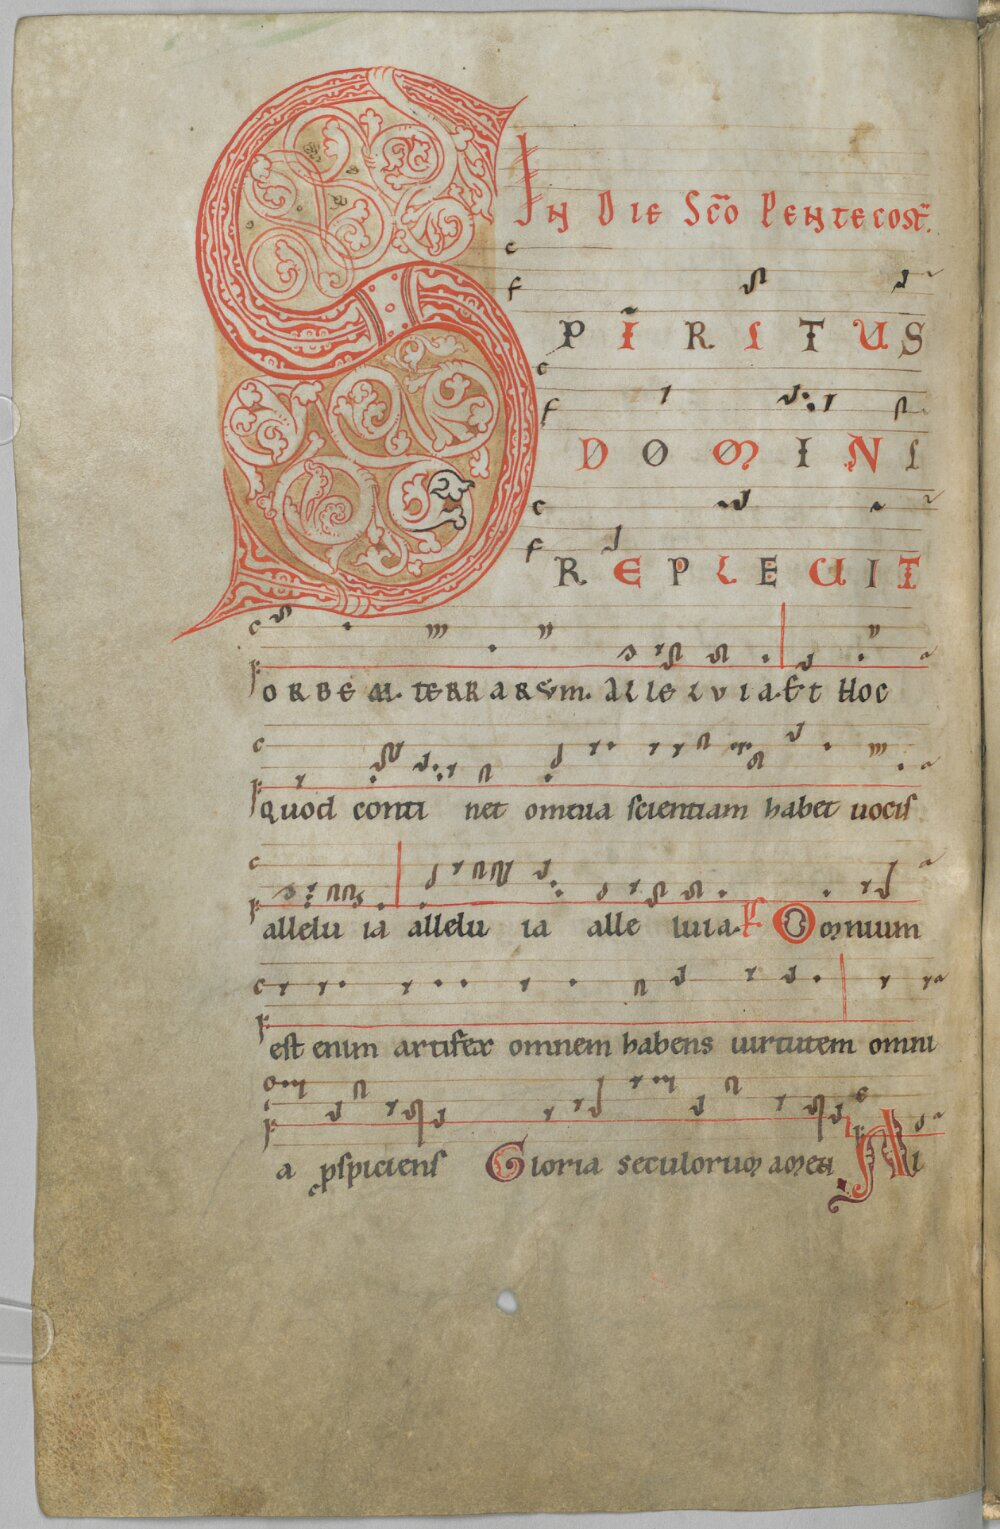 IN DIE SCŌ PENTECOST̄.
SPIRITUS
DOMINI
REPLEUIT
ORBEM. TERRARUM. ALLELUIA. Et Hoc
quod conti net omnia scientiam habet uocis
allelu ia allelu ia alle luia. Omnium
est enim artifex omnem habens uirtutem omni
a ꝓspiciens Gloria seculorum amen Al